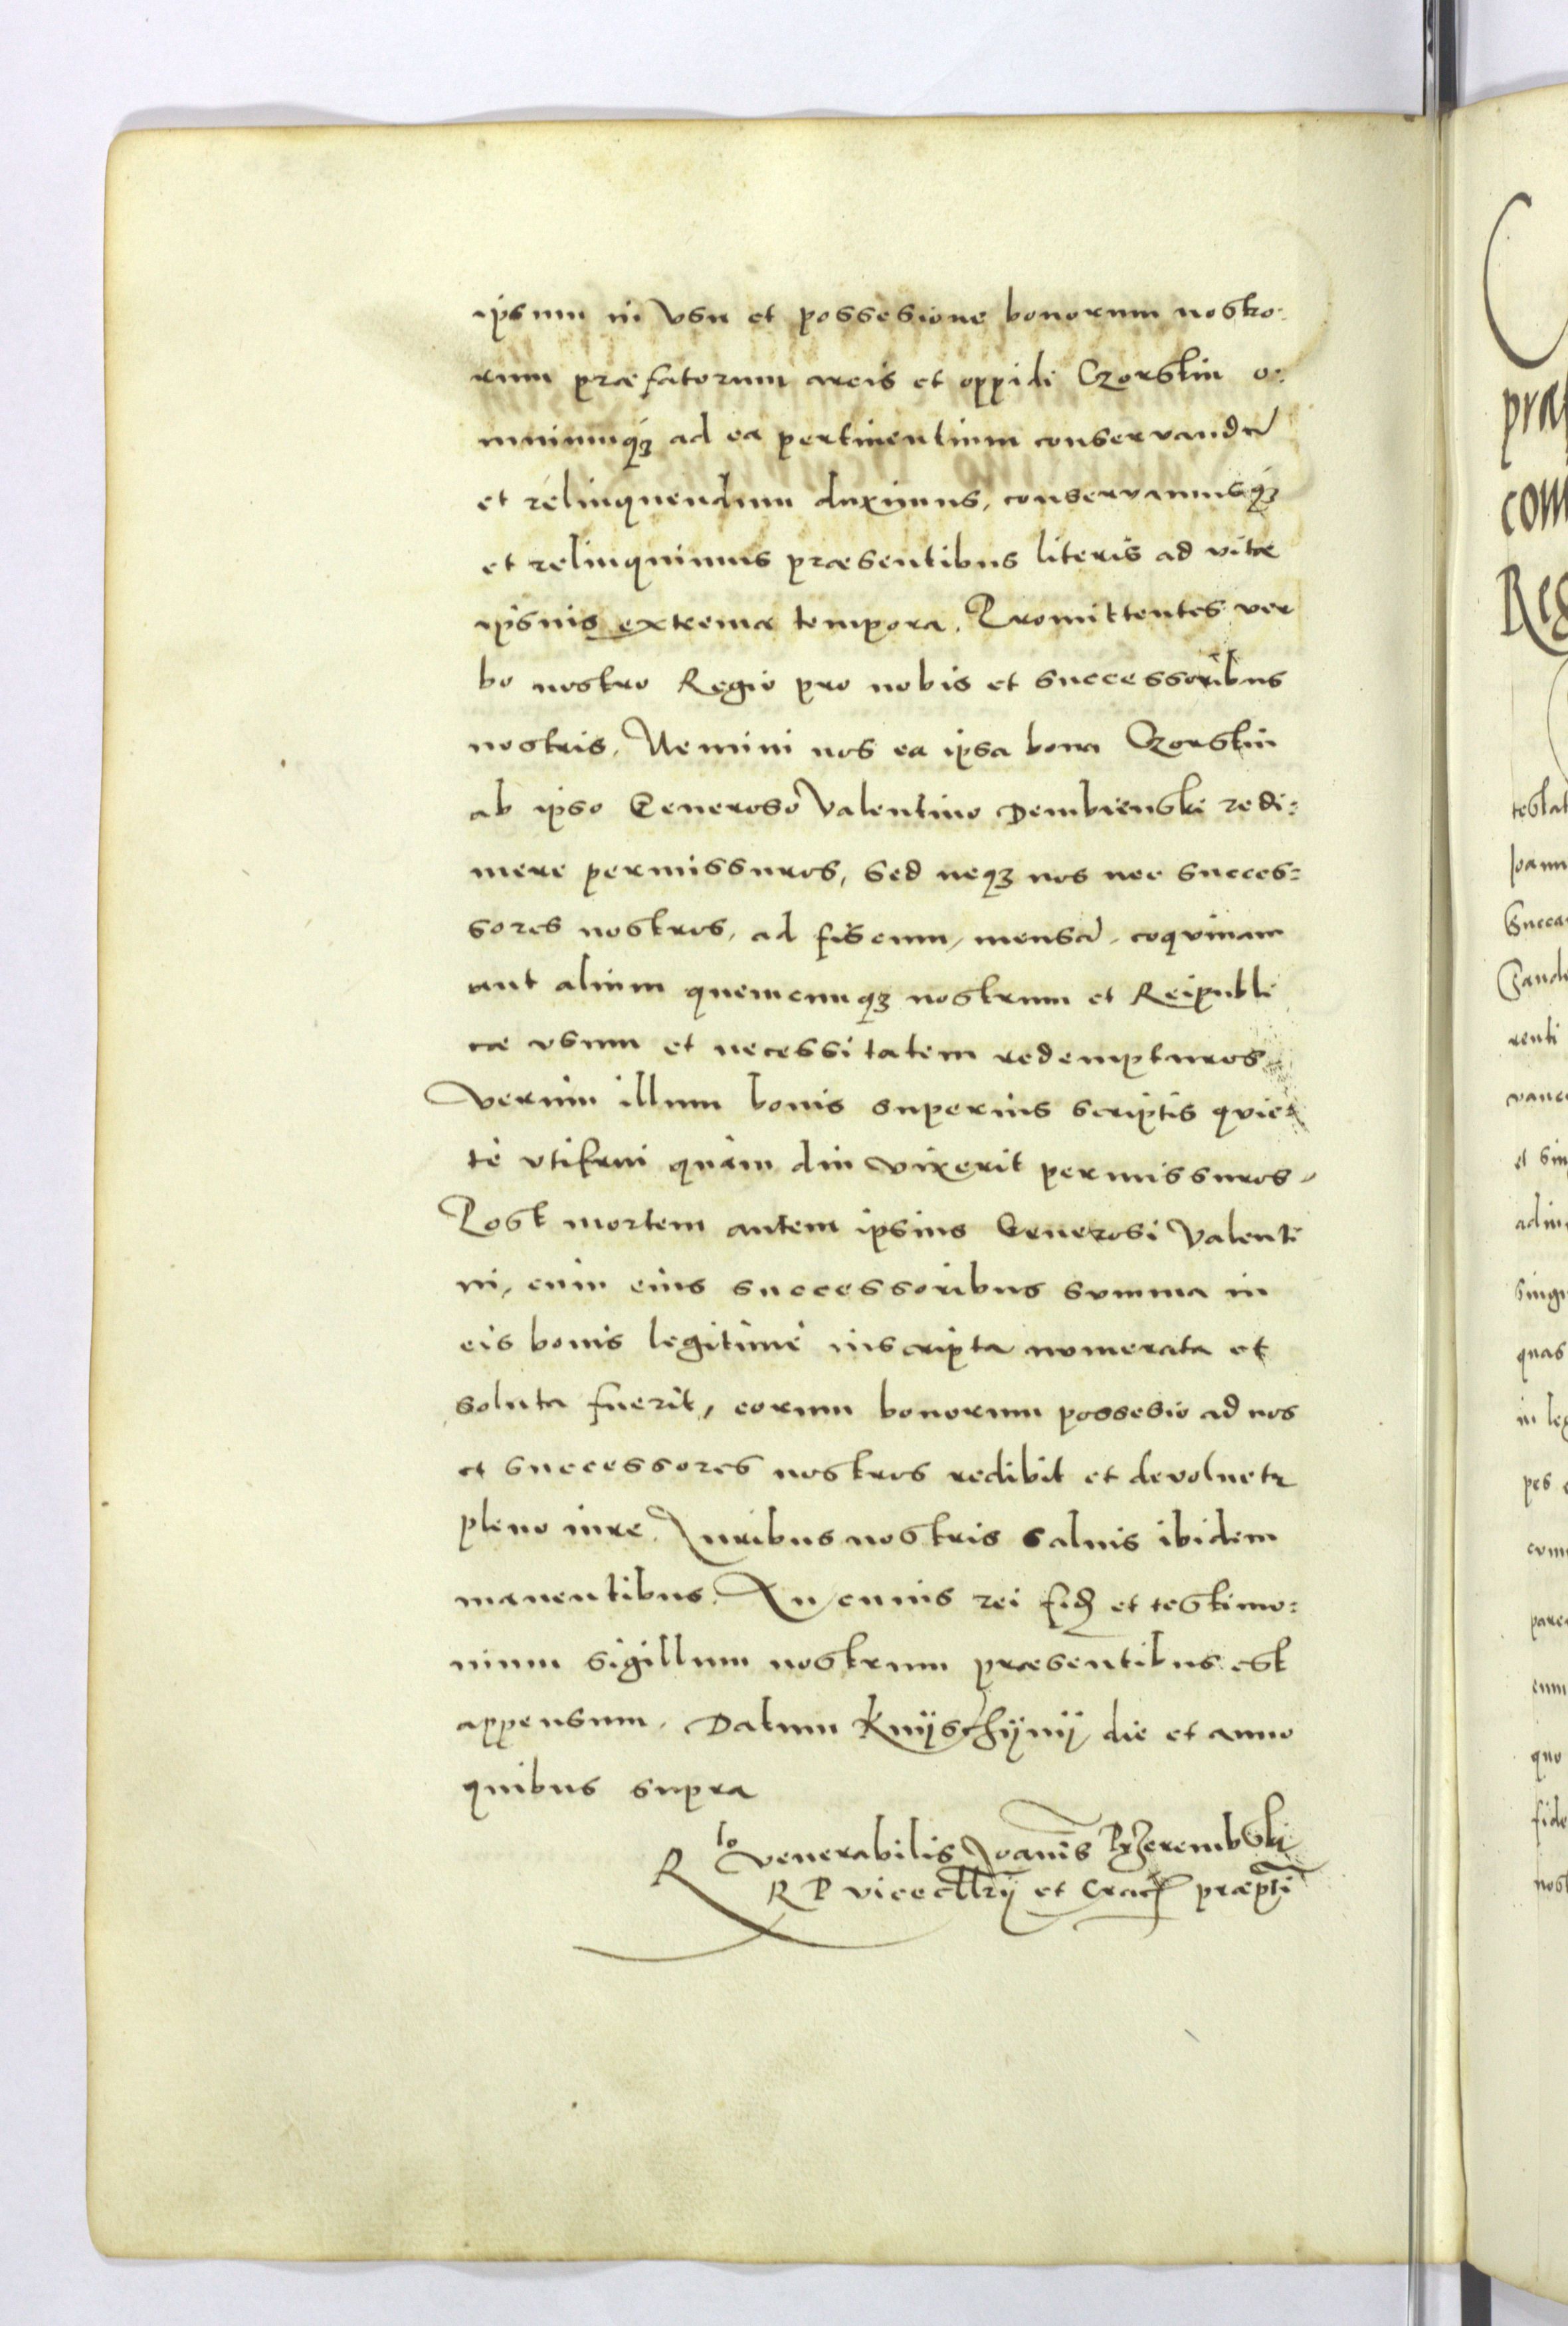 ipsum in vsu et possesione bonorum nostro:
rum præfatorum arcis et oppidi Czorstin o:
mniumq3 ad ea pertinentium conservandū
et relinquendum duximus, conservamusq3
et relinquimus præsentibus literis ad vitæ
ipsius extrema tempora. Promittentes ver
bo nostro Regio pro nobis et successoribus
nostris. Nemini nos ea ipsa bona Czorstin
ab ipso Generoso Valentino Dembienski redi:
mere permissuros, sed neq3 nos nec succes:
sores nostros, ad fiscum, mensā, coqvinam
aut alium quemcunq3 nostrum et Reipubli
cæ vsum et necessitatem redempturos.
Verum illum bonis superius scriptis qvie:
tè vtifrui quàm diu vixerit permissuros.
Post mortem autem ipsius Generosi Valenti
ni, cum eius successoribus summa in
eis bonis legitimè inscripta numerata et
soluta fuerit, eorum bonorum possesio ad nos
et successores nostros redibit et devoluetr
pleno iure. Iuribus nostris saluis ibidem
manentibus. In cuius rei fid et testimo:
nium sigillum nostrum præsentibus est
appensum. Datum Knijschijnij die et anno
quibus supra
Rlo venerabilis Joannis Przerembski
R P vicecllrij et Crac præpti